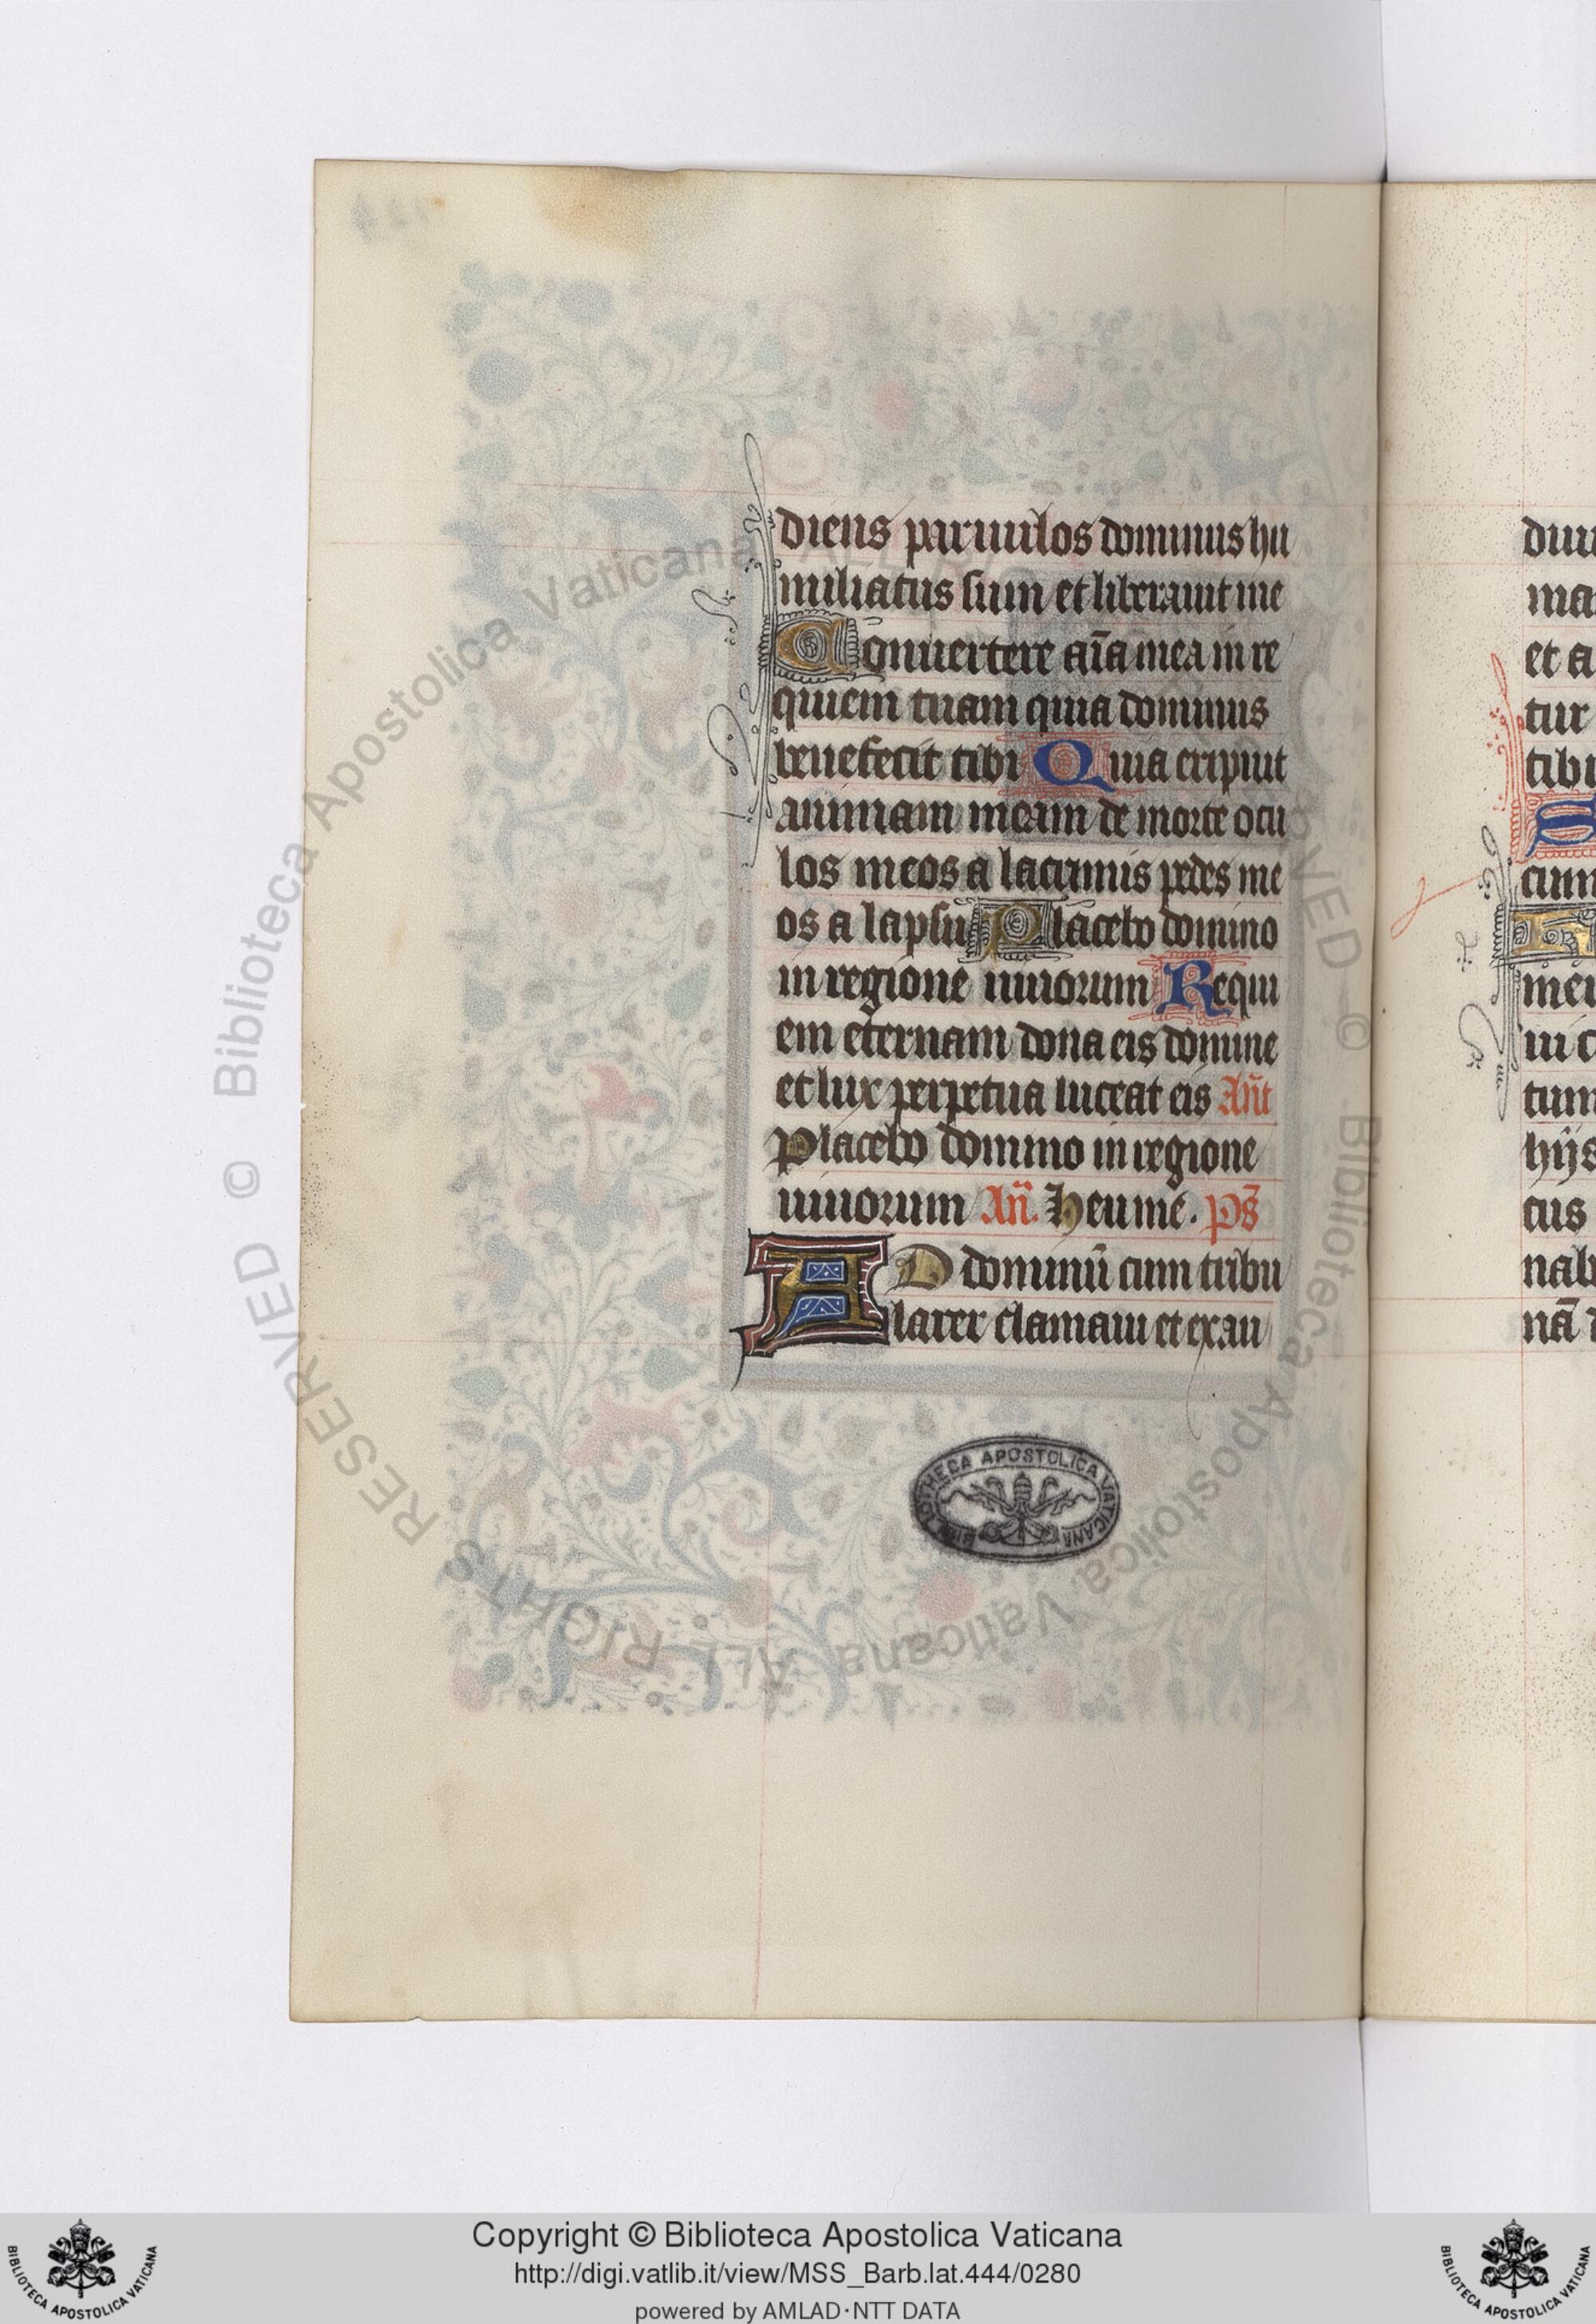 diens paruulos dominus hu
miliatus sum et liberauit me
Conuertere aīa mea in re
quiem tuam quia dominus
benefecit tibi Quia eripiut
animam meam de morte ocu
los meos a lacrimis pedes me
os a lapsu Placebo domino
in regione uiuorum Requi
em eternam dona eis domine
et lux perpetua luceat eis Añt
Placebo domino in regione
uiuorum Añ. Heu me. Ps̄
AD dominū cum tribu
larer clamaui et exau
BIBLIOTHECA APOSTOLICA VATICANA
et a
tur
tibi
cum
tum
hijs
tus
nab
nā
© Biblioteca Apostolica Vaticana ALL RIGHTS RESERVED
Copyright © Biblioteca Apostolica Vaticana
http://digi.vatlib.it/view/MSS_Barb.lat.444/0280
powered by AMLAD·NTT DATA
BIBLIOTECA APOSTOLICA VATICANA
BIBLIOTECA APOSTOLICA VATICANA